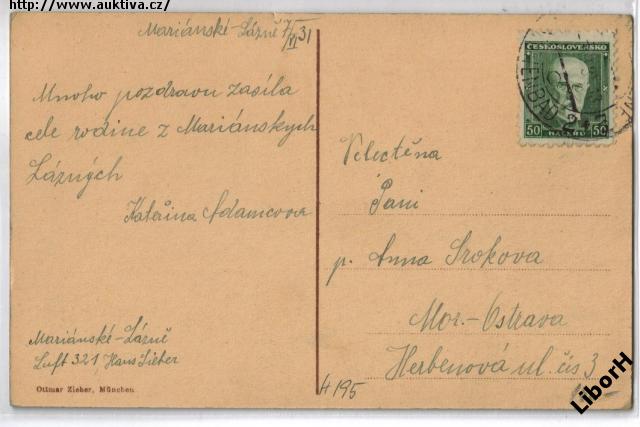 http://www.auktiva.cz/
Mariánské-Lázně 7/VI 31
Mnoho pozdravu zasíla
cele rodine z Mariánskych
Lázných
Kateřina Adamcova
Mariánské-Lázně
Luft 321 Hans Lieber
Ottmar Zieher, München
ČESKOSLOVENSKO
50 HALÉŘŮ 50
Velectěna
Pani
p. Anna Srokova
Mor.-Ostrava
Herbenová ul. čis 3
4195
LiborH